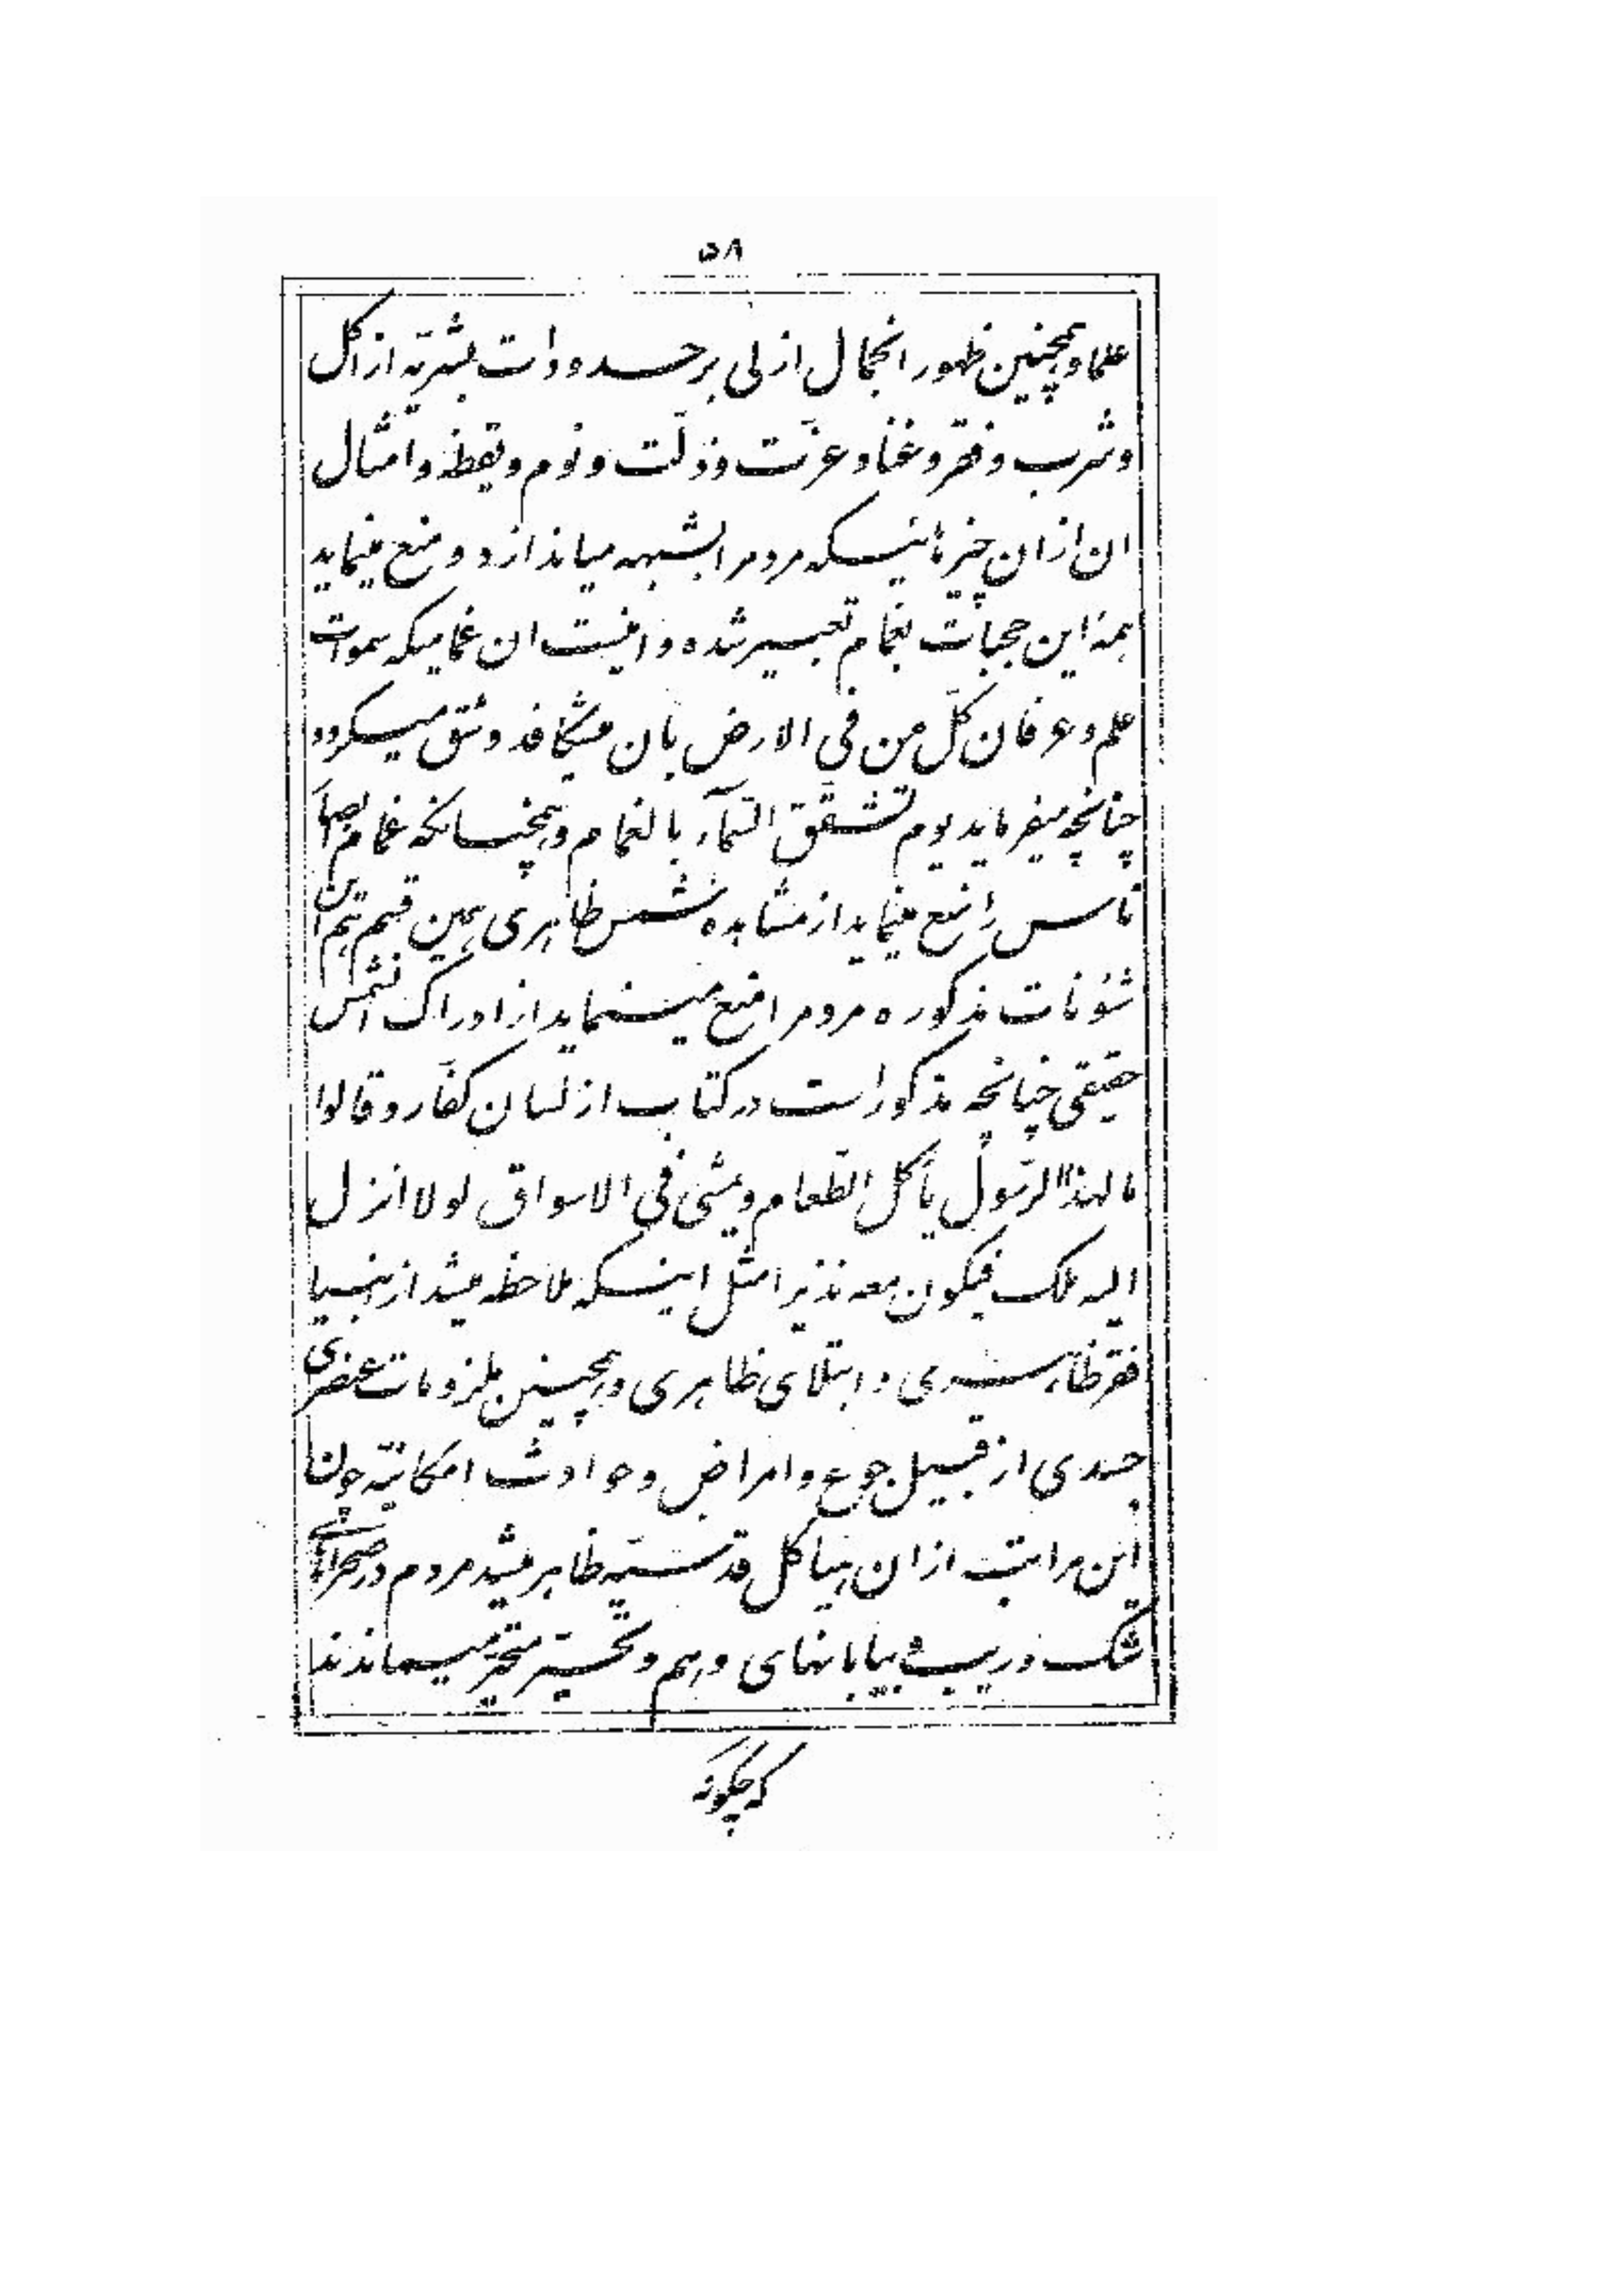 ۵۸
علما و همچنین ظهور انجمال ازلی بر حدودات بشریّه از اکل
و شرب و فقر و غنا و عزّت و ذلّت و نوم و یقظه و امثال
ان از ان چیزهائیکه مردم را بشبهه میاندازد و منع مینماید
همهٔ این حجبات بغمام تعبیر شده و اینست ان غمامیکه سموات
علم و عرفان کلّ من فی الارض بان میشکافد و شقّ میگردد
چنانچه میفرماید یوم تشقّق السّمآء بالغمام و همچنانکه غمام ابصار
ناس را منع مینماید از مشاهده شمس ظاهری همین قسم هم این
شئونات مذکوره مردم را منع مینماید از ادراک انشمس
حقیقی چنانچه مذکور است در کتاب از لسان کفّار و قالوا
ما لهذا الرّسول یأکل الطّعام و یمشی فی الاسواق لولا انزل
الیه ملک فیکون معه نذیرا مثل اینکه ملاحظه میشد از انبیا
فقر ظاهری و ابتلای ظاهری و همچنین ملزومات عنصری
جسدی از قبیل جوع و امراض و حوادث امکانیّه چون
این مراتب از ان هیاکل قدسیّه ظاهر میشد مردم در صحراهای
شک و ریب و بیابانهای وهم و تحیّر متحیّر میماندند
که چگونه